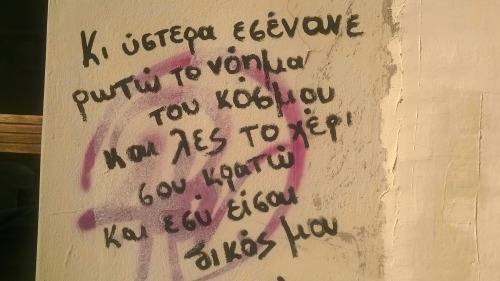 Κι ύστερα εσένανε
ρωτώ το νόημα
του κόσμου
και λες το χέρι
σου κρατώ
και εσύ είσαι
δικός μου